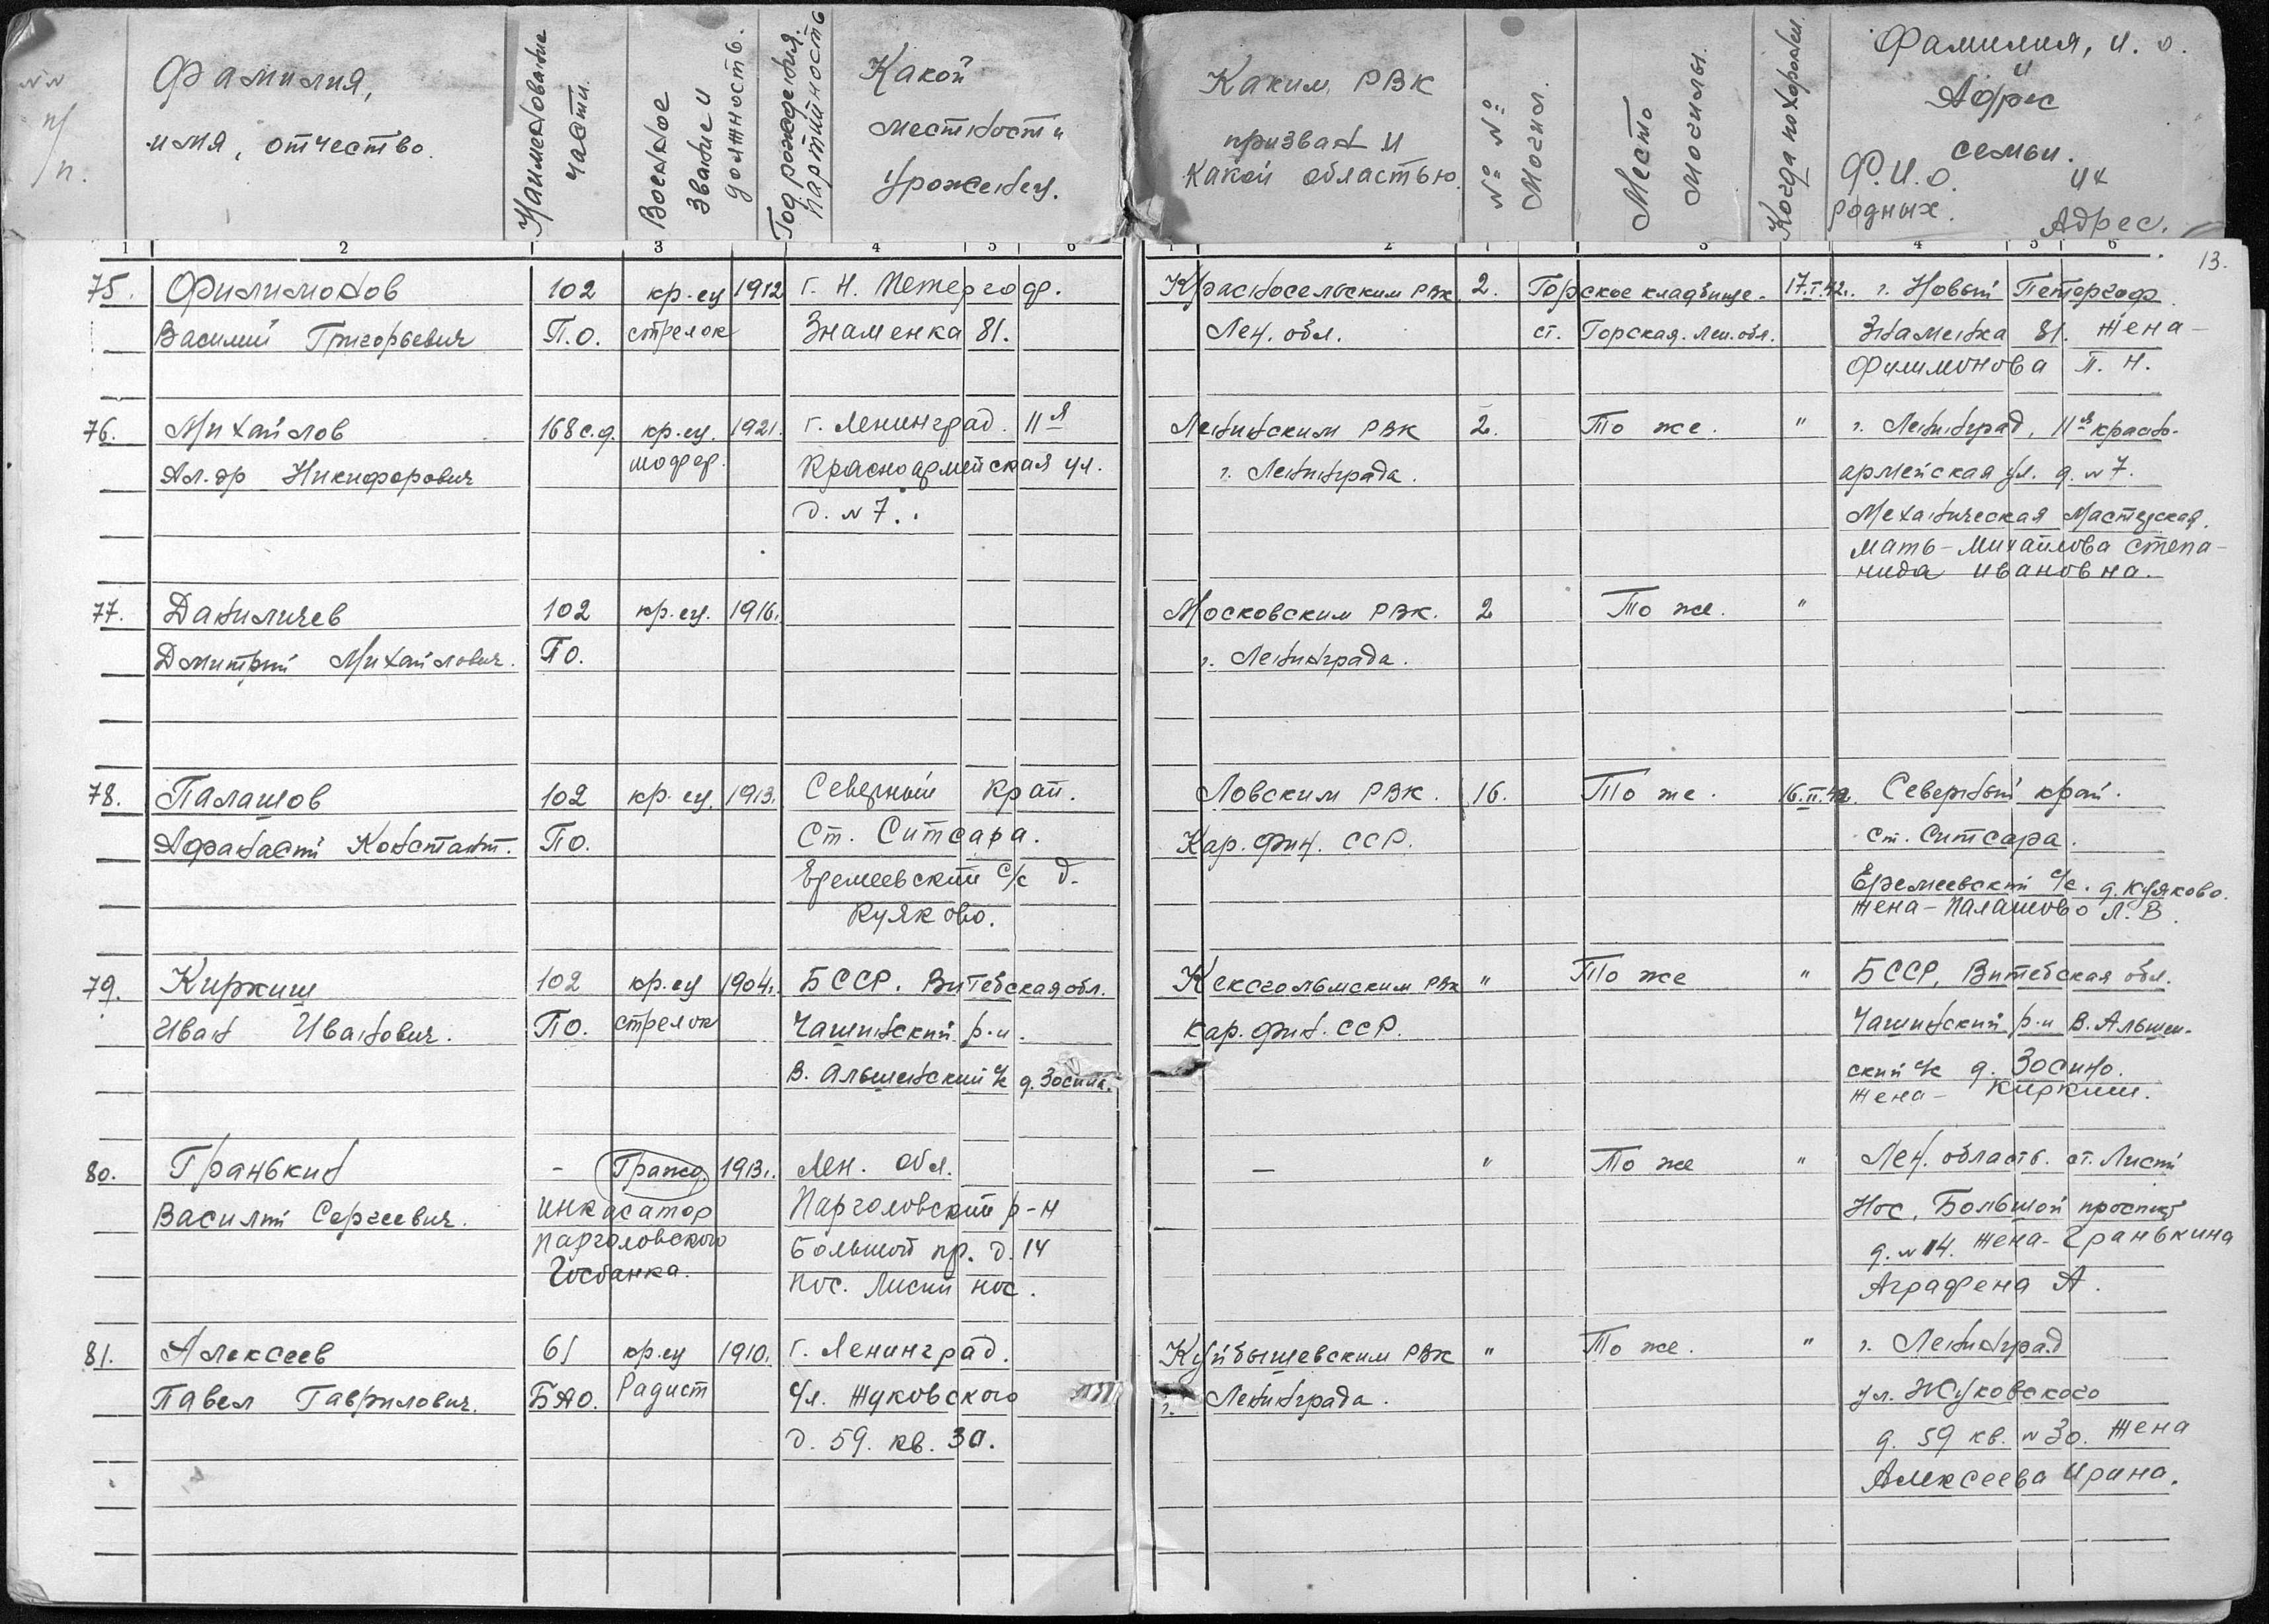 №№ п/п.
Фамилия,
имя, отчество.
Наименование
части.
Военное
звание и
должность.
Год рождения.
партийность
Какой
местности
уроженец.
Каким РВК
призван и
какой областью.
№№ №№
Могил.
Место
Могилы.
Когда похоронен.
Фамилия, И. О.
и
Адрес
семьи.
Ф.И.О. их
родных. Адрес.
1 2 3 4 5 6
1 2 3 4 5 6
13.
75. Филимонов 102 кр-ец 1912 г. Н. Петергоф. Красносельским РВК 2. Горское кладбище. 17.I.42г. г. Новый Петергоф.
Василий Григорьевич П.О. стрелок Знаменка 81. Лен. обл. ст. Горская. Лен. обл. Знаменка 81. жена-
Филимонова П. Н.
76. Михайлов 168 с.д. кр.ец. 1921. г. Ленинград. 11я Ленинским РВК 2. То же. " г. Ленинград, 11я красно-
Ал-др Никифорович шофер. Красноармейская ул. г. Ленинграда. армейская ул. д. №7.
д. №7. Механическая Мастерская.
мать-Михайлова Степа-
нида Ивановна.
77. Даниличев 102 кр.ец. 1916. Московским РВК. 2 То же. "
Дмитрий Михайлович. ПО. г. Ленинграда.
78. Палашов 102 кр.ец. 1913. Северный край. Ловским РВК. 16. То же. 16.II.42. Северный край.
Афанасий Констант. ПО. Ст. Ситсара. Кар. Фин. ССР. ст. Ситсара.
Еремеевский с/с д. Еремеевский с/с. д. Куяково.
Куяково. жена-Палашова Л. В.
79. Киркиш 102 кр.ец 1904г. БССР. Витебская обл. Кексгольмским РВК " То же " БССР, Витебская обл.
Иван Иванович. ПО. стрелок Чашинский р-н. Кар. Фин. ССР. Чашинский р-н В. Альшен-
В. Альшенский с/с д. Зосина. ский с/с д. Зосино.
жена- Киркиш.
80. Гранькин - Гражд. 1913г. Лен. обл. — " То же " Лен. область. ст. Лисий
Василий Сергеевич. инкасатор Парголовский р-н Нос, Большой проспект
парголовского Большой пр. д. 14 д. №14. жена-Гранькина
Госбанка. пос. Лисий нос. Аграфена А.
81. Алексеев 61 кр.ец 1910. г. Ленинград. Куйбышевским РВК " То же. " г. Ленинград
Павел Гаврилович. БАО. Радист ул. Жуковского г. Ленинграда. ул. Жуковского
д. 59. кв. 30. д. 59 кв. №30. жена
Алексеева Ирина.